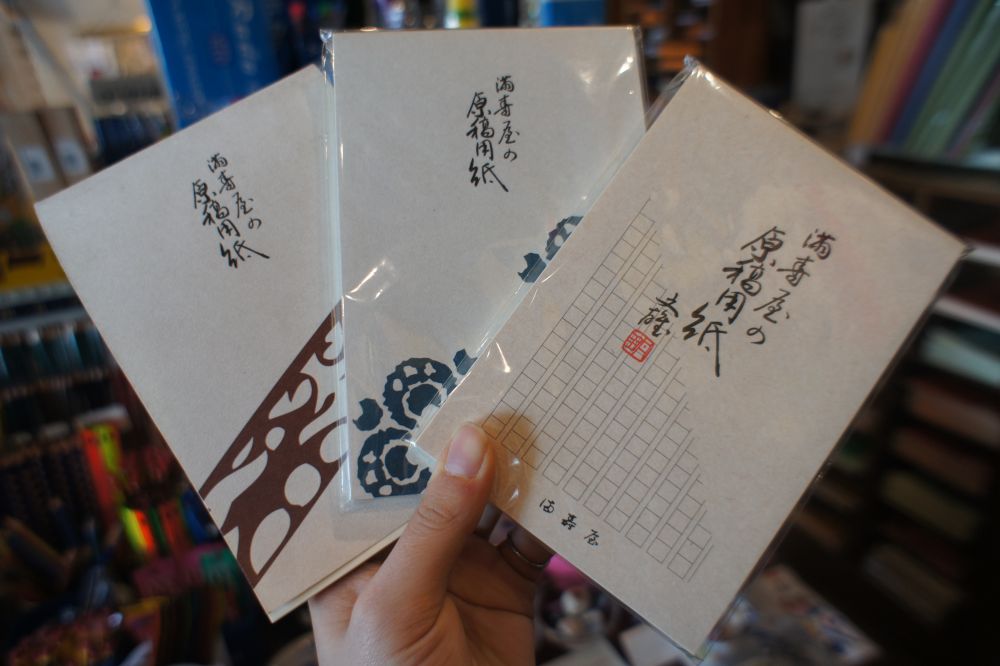 満寿屋の
原稿用紙
満寿屋の
原稿用紙
満寿屋の
原稿用紙
満寿屋